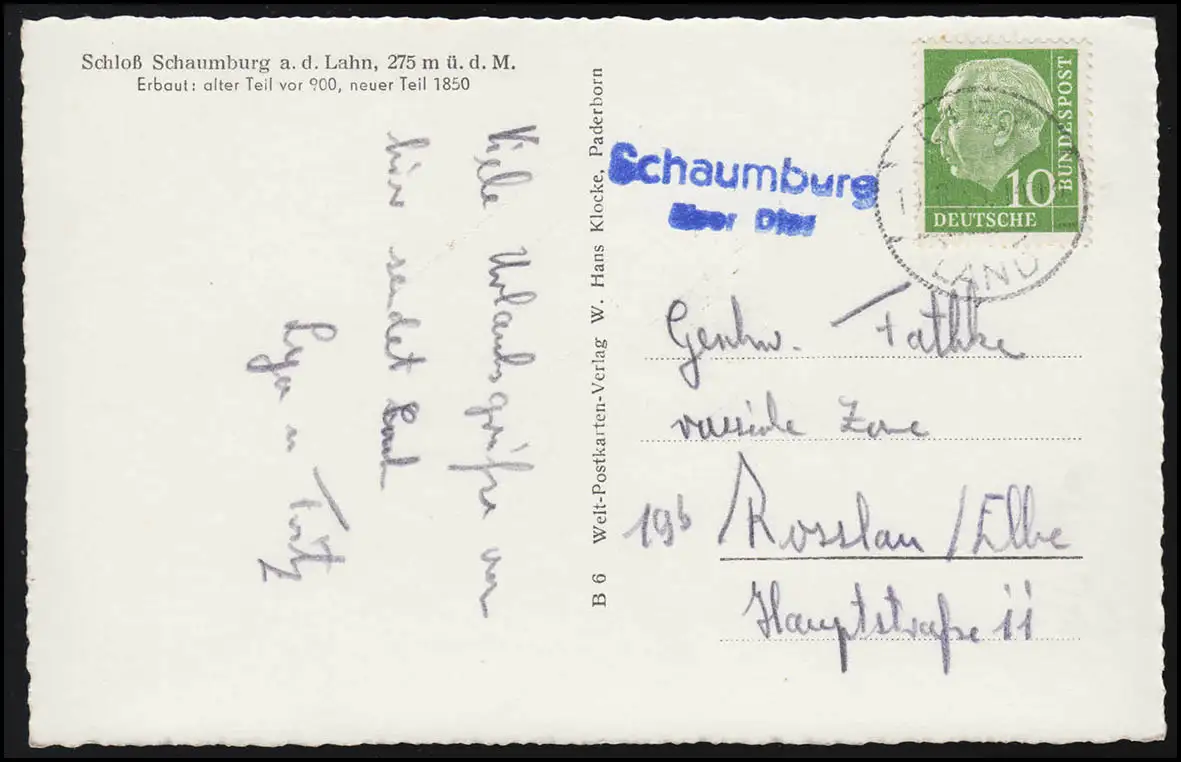 Schloß Schaumburg a. d. Lahn, 275 m ü. d. M.
Erbaut: alter Teil vor 900, neuer Teil 1850
Viele Urlaubsgrüße von
hier sendet
Lya u Fritz
B 6 Welt-Postkarten-Verlag W. Hans Klocke, Paderborn
Schaumburg
über Diez
BUNDESPOST
10
DEUTSCHE
LAND
Fathke
russische Zone
19b Rosslau/Elbe
Hauptstraße 11